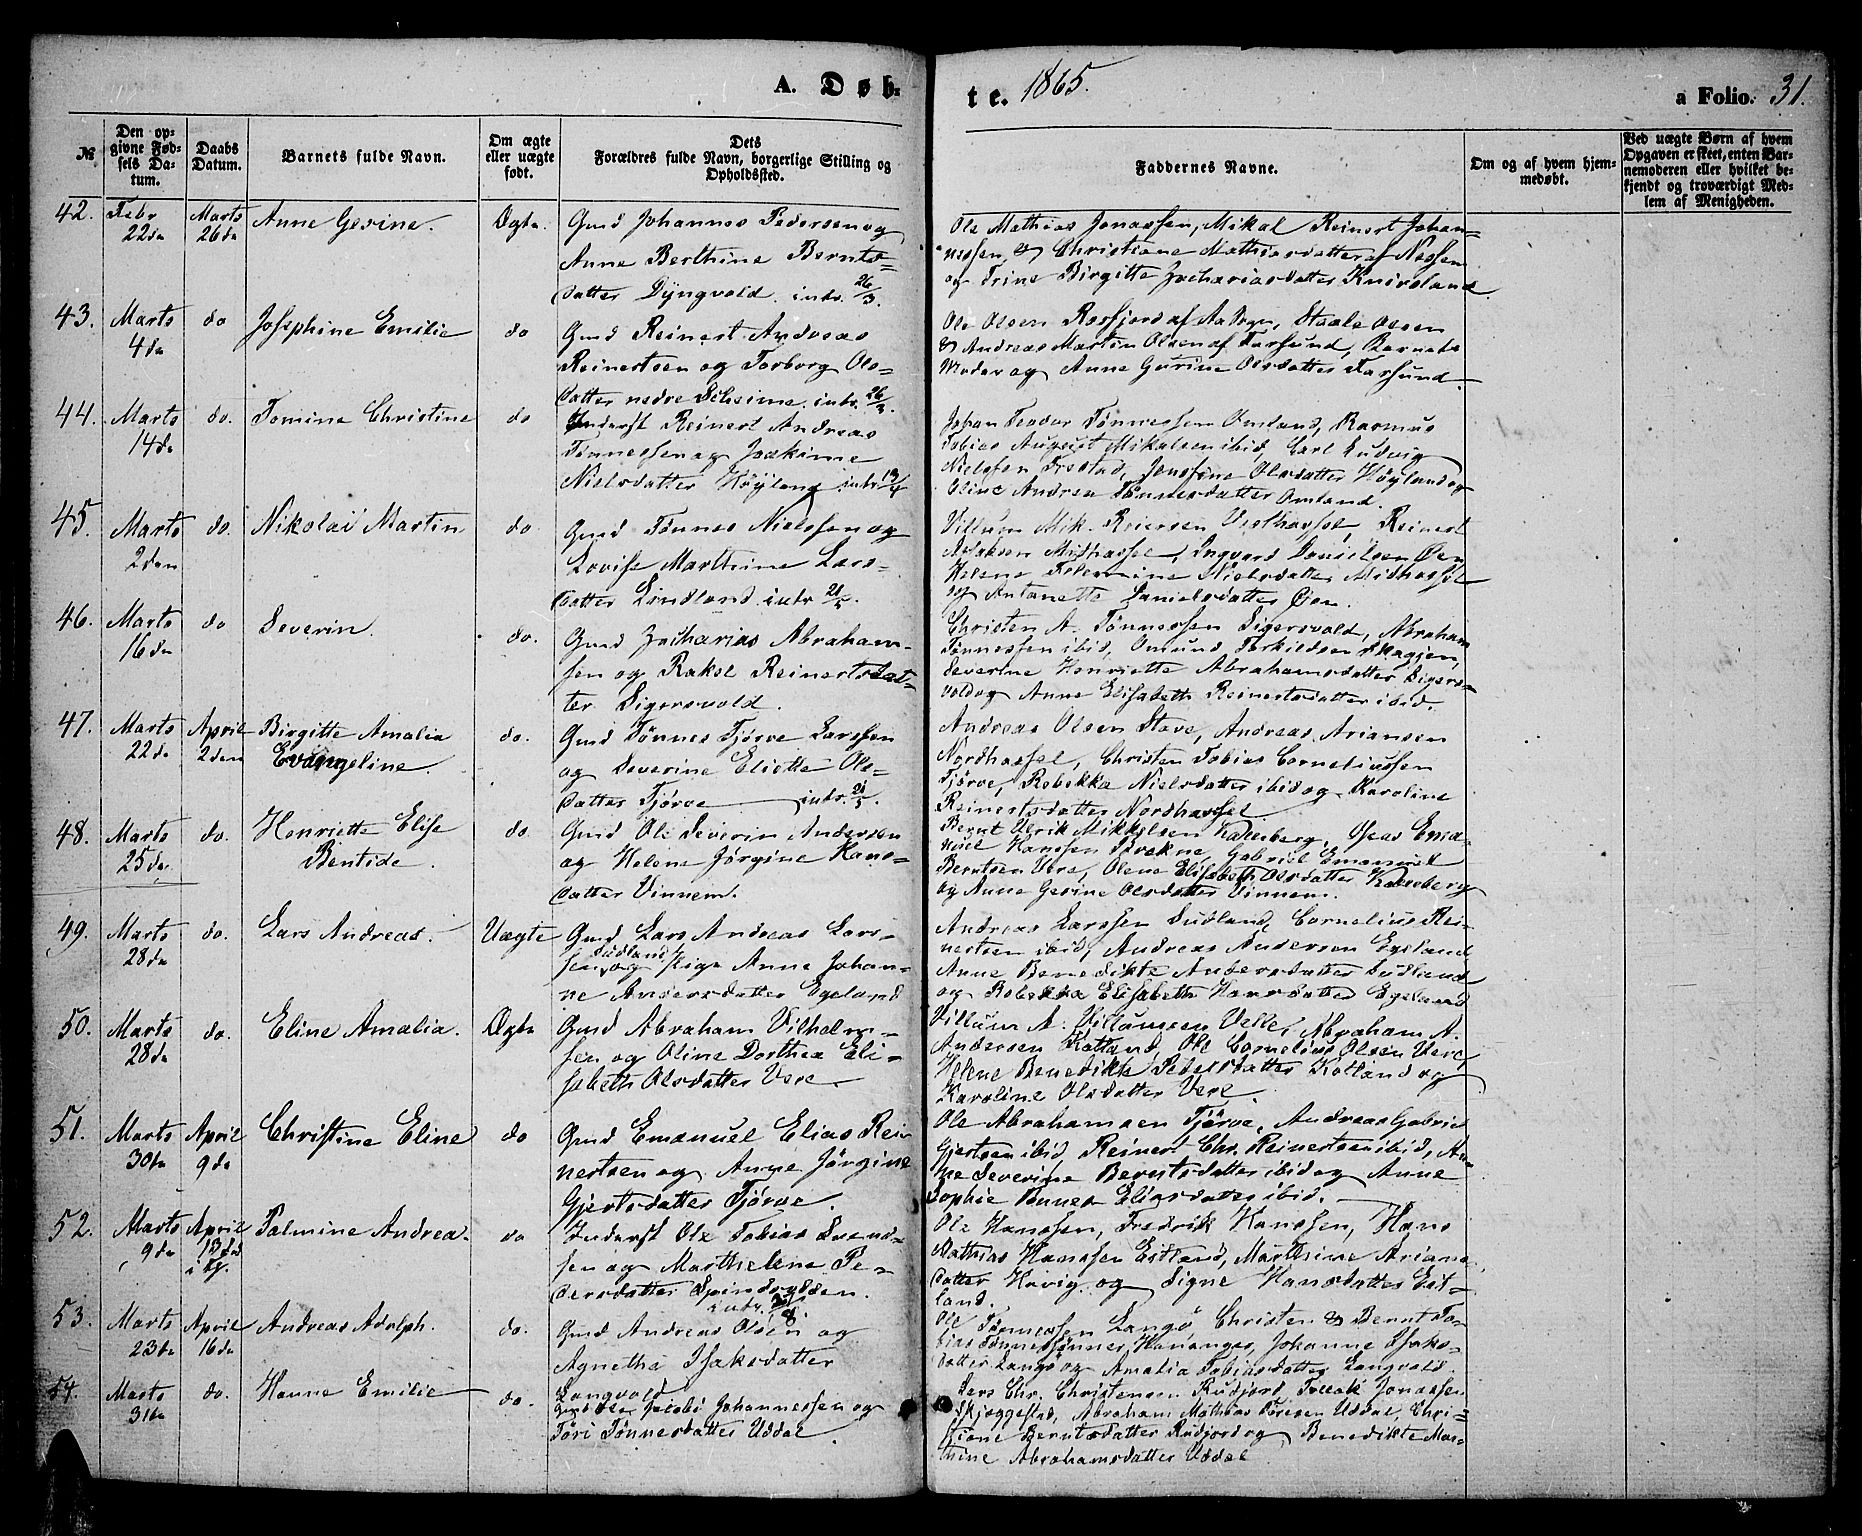 A. Døb-
te. 1865.
a Folio. 31.
№
Den op-
givne Fød-
sels Da-
tum.
Daabs
Datum.
Barnets fulde Navn.
Om ægte
eller uægte
født.
Dets
Forældres fulde Navn, borgerlige Stilling og
Opholdssted.
Faddernes Navne.
Om og af hvem hjem-
medøbt.
Ved uægte Børn af hvem
Opgaven er skeet, enten Bar-
nemoderen eller hvilket be-
kjendt og troværdigt Med-
lem af Menigheden.
42. Febr 22de Marts 26de Anne Gesine. Ægte.
Gmd Johannes Pedersen og
Anne Berthine Bernts-
datter Dyngvold. intr. 26/3.
Ole Mathias Jonassen, Mikal Reinert Johan-
nessen, & Christiane Mathiasdatter af Nessen
og Trine Birgitte Zachariasdatter Knivsland.
43. Marts 4de do Josephine Emilie do
Gmd Reinert Andreas
Reinertsen og Torborg Ols-
datter nedre Skeime. intr. 26/3.
Ole Olsen Rosfjord af Aa Sogn, Staale Olsen
& Andreas Martin Olsen af Farsund, Barnets
Moder og Anne Gurine Olsdatter Farsund.
44. Marts 14de do. Tomine Christine do
Inderst Reinert Andreas
Tønnessen og Joakime
Nielsdatter Høyland intr. 13/4
Johan Teodor Tønnessen Omland, Rasmus
Tobias August Mikalsen ibid, Carl Ludvig
Nielssen Frestad, Jonssine Olsdatter Høyland og
Oline Andrea Tønnesdatter Omland.
45. Marts 2den do. Nikolai Martin do
Gmd Tønnes Nielssen og
Lovise Marthine Lars-
datter Lindland. intr 21/5.
Villum Mik. Reiersen Vesthassel, Reinert
Aslaksen Midhassel, Ingvard Danielsen Øien
Helene Tolemine Nielsdatter Midhassel
og Antonette Danielsdatter Øien.
46. Marts 16de do Severin. do.
Gmd Zacharias Abraham-
sen og Rakel Reinertsdat-
ter Sigersvold.
Christen A. Tønnessen Sigersvold, Abraham
Tønnessen ibid, Omund Torkildsen Skagjen,
Severine Henriette Abrahamsdatter Sigers-
vold og Anne Elisabeth Reinertsdatter ibid.
47. Marts 22de April 2den Birgitte Amalia
Evangeline. do.
Gmd Tønnes Tjørve Larssen
og Severine Eliotte Ols-
datter Tjørve intr. 21/5.
Andreas Olsen Stave, Andreas Ariansen
Nordhassel, Christen Tobias Corneliussen
Tjørve, Rebekka Nielsdatter ibid og Karoline
Reinertsdatter Nordhassel
48. Marts 25de do. Henriette Elise
Bentide. do.
Gmd Ole Severin Andersen
og Helene Jørgine Hans-
datter Vinnem.
Bernt Ulrik Mikkelsen Kalleberg, Oseas Ema-
nuel Hanssen Tvekne, Gabriel Emanuel
Berntsen Vere, Olene Elisabeth Olsdatter Kalleberg
og Anne Gesine Olsdatter Vinnem.
49. Marts 28de do. Lars Andreas. Uægte
Gmd Lars Andreas Lars-
sen Sudland og Pige Anne Johan-
ne Andersdatter Egeland
Andreas Larssen Sudland, Cornelius Rei-
nertsen ibid, Andreas Andersen Egeland
Anne Benedikte Andersdatter Sudland
og Rebekka Elisabeth Hansdatter Egeland
50. Marts 28de do. Eline Amalia. Ægte
Gmd Abraham Vilhelm-
sen og Oline Dorthea Eli-
sabeth Olsdatter Vere
Villum A. Villumsen Velle, Abraham A.
Andersen Kolland, Ole Cornelius Olsen Vere,
Helene Benedikte Pedersdatter Kolland og
Karoline Olsdatter Vere.
51. Marts 30te April 9de Christine Eline do
Gmd Emanuel Elias Rei-
nertsen og Anne Jørgine
Gjertsdatter Tjørve.
Ole Abrahamsen Tjørve, Andreas Gabriel
Gjertsen ibid, Reinert Chr. Reinertsen ibid, An-
ne Severine Berntsdatter ibid og Anne
Sophie Eliasdatter ibid.
52. Marts 9de April 13de i Kj. Palmine Andrea. do
Inderst Ole Tobias Svend-
sen og Marthelene Pe-
dersdatter Spindsodden.
intr.
Ole Hanssen, Fredrik Hanssen, Hans
Mathias Hanssen Estland, Marthine Arians-
datter Havig og Signe Hansdatter Est-
land.
53. Marts 23de April 16de Andreas Adolph. do.
Gmd Andreas Olsen og
Agnetha Isaksdatter
Langvold
Ole Tønnessen Langø, Christen & Bernt To-
bias Tønnessønner Hananger, Johanne Isaks-
datter Langø og Amalia Tobiasdatter Langvold.
54. Marts 31te do. Hanne Emilie do.
Gmd Ole Jacob Johannessen og
Tøri Tønnesdatter Uddal.
Lers Chr. Christensen Rudjord, Tollak Jonassen
Skjeggestad, Abraham Mathias Tøresen Uddal, Chri-
stiane Berntsdatter Rudjord og Benedikte Mar-
thine Abrahamsdatter Uddal